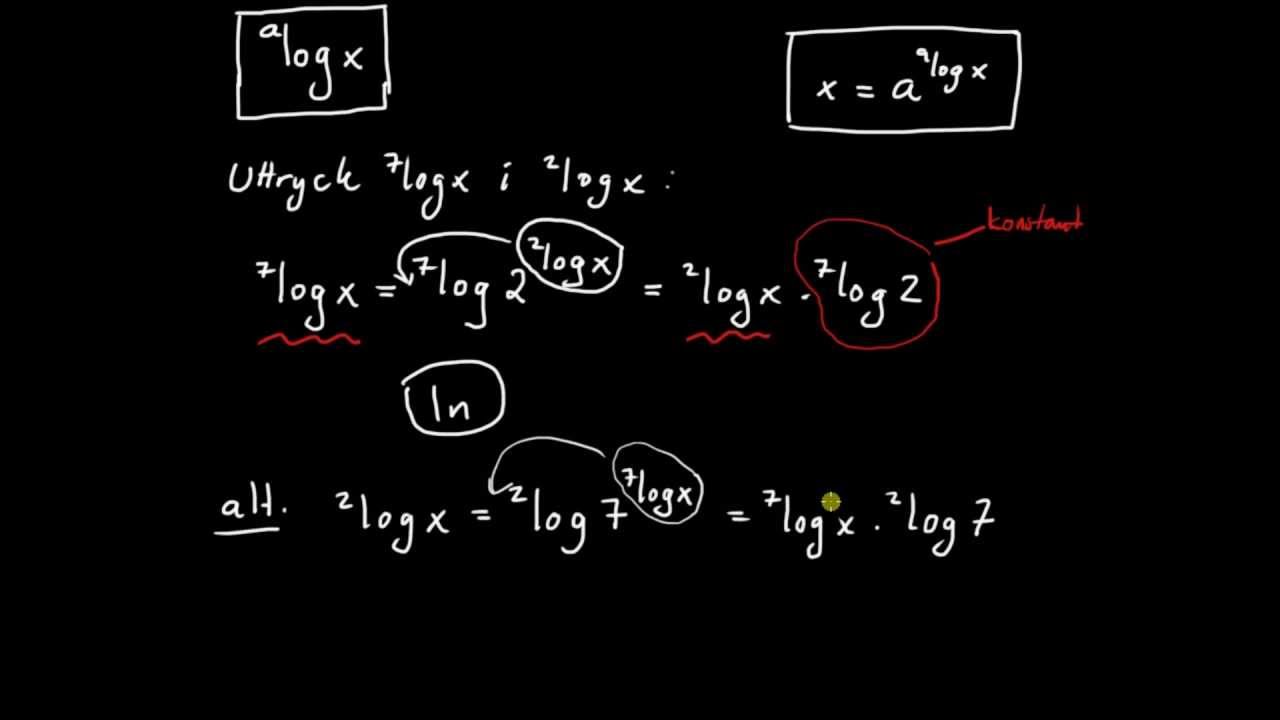 ᵃlog x
x = a^(ᵃlog x)
Uttryck ⁷log x i ²log x :
konstant
⁷log x = ⁷log 2^(²log x) = ²log x · ⁷log 2
ln
alt. ²log x = ²log 7^(⁷log x) = ⁷log x · ²log 7